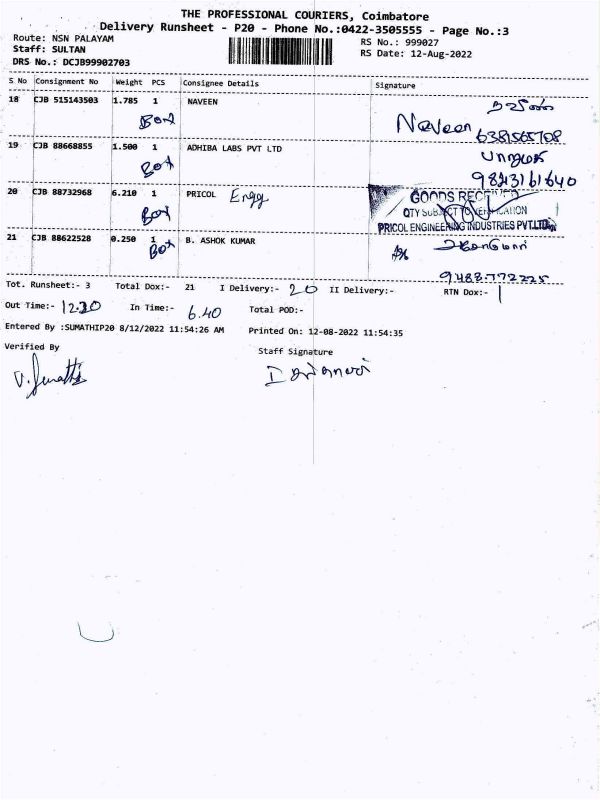 THE PROFESSIONAL COURIERS, Coimbatore
Delivery Runsheet - P20 - Phone No.:0422-3505555 - Page No.:3
Route: NSN PALAYAM
RS No.: 999027
Staff: SULTAN
RS Date: 12-Aug-2022
DRS No.: DCJB99902703
S. No Consignment No Weight PCS Consignee Details Signature
18 CJB 515143503 1.785 1 NAVEEN நவீன்
Box Naveen 6381565708
19 CJB 88668855 1.500 1 ADHIBA LABS PVT LTD
Box 9843161640
20 CJB 88732968 6.210 1 PRICOL Engg GOODS RECEIVED
Box QTY SUBJECT TO VERIFICATION
PRICOL ENGINEERING INDUSTRIES PVT.LTD.
21 CJB 88622528 0.250 1 B. ASHOK KUMAR
Box 9488772225
Tot. Runsheet:- 3 Total Dox:- 21 I Delivery:- 20 II Delivery:- RTN Dox:- 1
Out Time:- 12.20 In Time:- 6.40 Total POD:-
Entered By :SUMATHIP20 8/12/2022 11:54:26 AM Printed On: 12-08-2022 11:54:35
Verified By Staff Signature
V. Sumathi